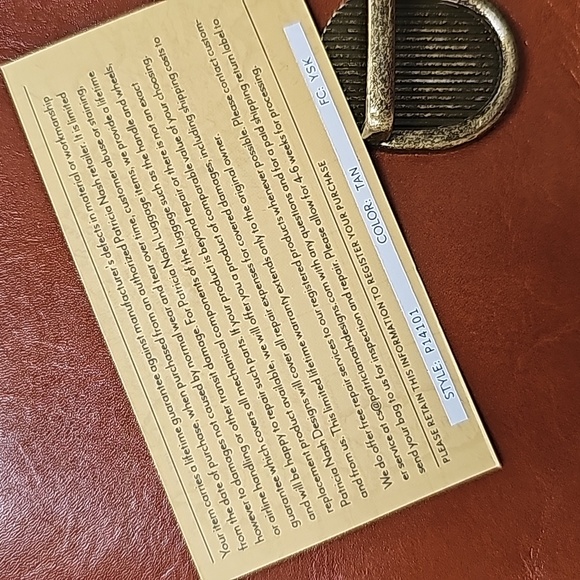 Your item carries a lifetime guarantee against manufacture's defects in material or workmanship
from the date of purchase, when purchased from an authorized Patricia Nash retailer. It is limited
however to damage not caused by normal wear and tear over time, customer abuse or staining,
or airline handling or other transit damage. For Patricia Nash Luggage items, we provide a lifetime
guarantee which cover all mechanical components of the luggage such as the handle and wheels,
and will be happy to repair such parts. If your product is beyond repair or there is not an exact
replacement product available, we will offer you a product of comparable value of your choosing.
Patricia Nash Designs will cover all repair expenses for covered damages, including shipping costs to
and from us. This limited lifetime warranty extends only to the original owner.
We do offer free repair services to our registered products whenever possible. Please contact custom
er service at cs@patricianashdesigns.com with any questions and for a paid shipping return label to
send your bag to us for inspection and repair. Please allow for 4-6 weeks for processing.
PLEASE RETAIN THIS INFORMATION TO REGISTER YOUR PURCHASE
STYLE: P14101 COLOR: TAN FC: YSK